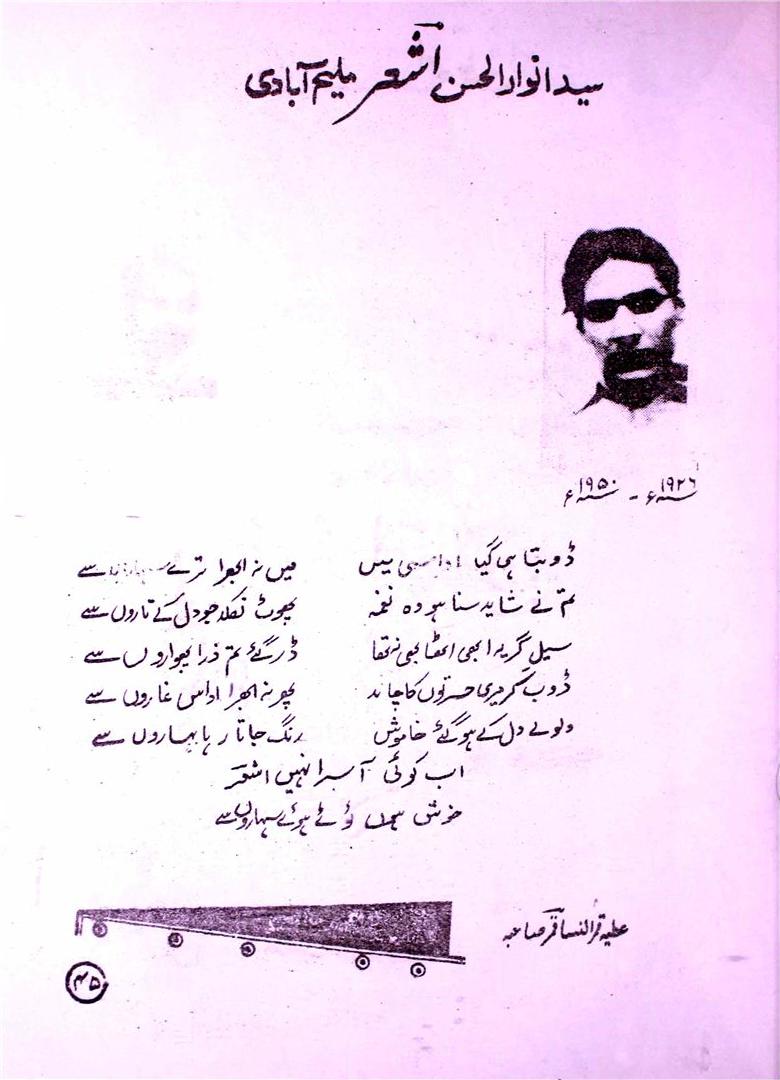 سید انوار الحسن اشعر ملیح آبادی
۱۹۲۶ء - ۱۹۵۰ء
ڈوبتا ہی گیا اداسی میں میں نہ ابھرا ترے سے
تم نے شاید سنا ہو وہ نغمہ پھوٹ نکلا جو دل کے تاروں سے
سیلِ گریہ ابھی اٹھا بھی نہ تھا ڈر گئے تم ذرا پھواروں سے
ڈوب کر میری حسرتوں کا چاند پھر نہ ابھرا اداس غاروں سے
ولولے دل کے ہو گئے خاموش رنگ جاتا رہا بہاروں سے
اب کوئی آسرا نہیں اشعر
خوش ہوں ٹوٹے ہوئے سہاروں سے
عطیہ قمر النسا قمر صاحبہ
۴۵